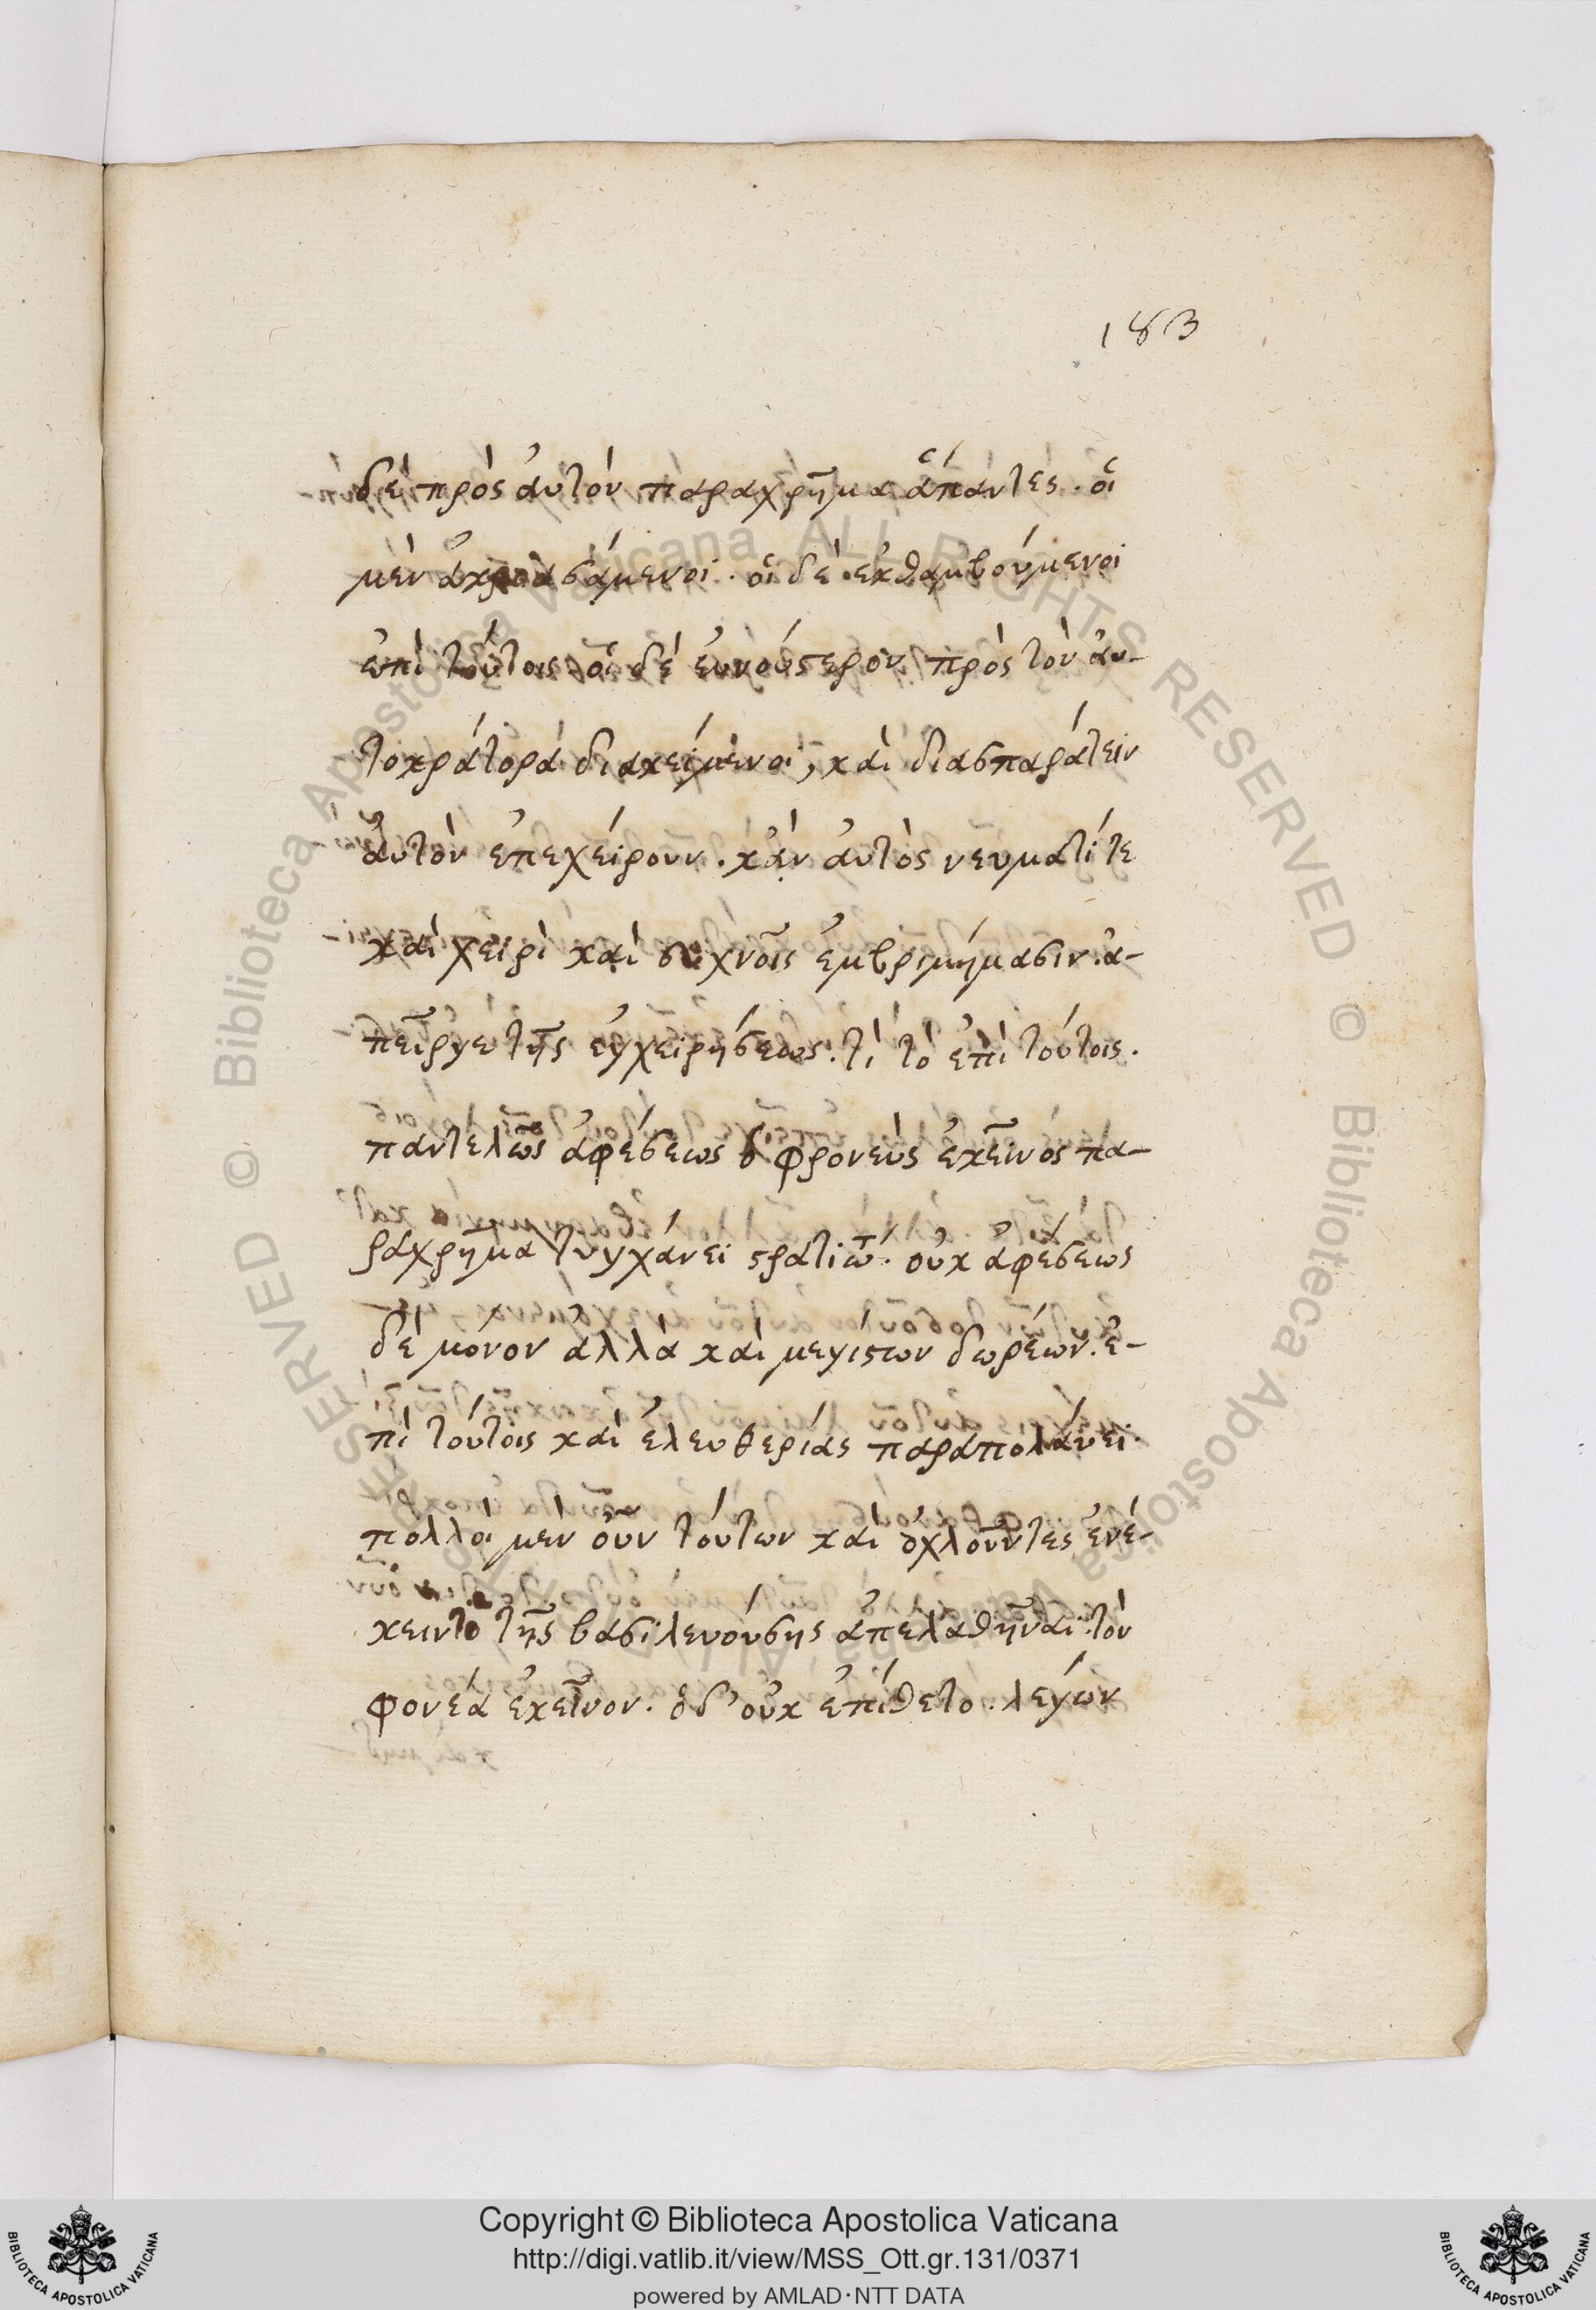 183
δὲ πρὸς ἀυτὸν παραχρῆμα ἅπάντες. οἱ
μὲν ἀκροασάμενοι. οἱ δὲ ἐκθαμβούμενοι
ἐπὶ τούτοις οἱ δὲ ἐυνούστερον πρὸς τὸν ἀυ-
τοκράτορα διακείμενοι, καὶ διασπαράτειν
ἀυτὸν ἐπεχείρουν. κἂν ἀυτὸς νευματί τε
καὶ χειρὶ καὶ συχνοῖς ἐμβριμήμασιν. ἀ-
πεῖργε τῆς ἐγχειρήσεως. τί τὸ ἐπὶ τούτοις.
παντελῶς ἀφέσεως ὁ φρονεὺς ἐκεῖνος πα-
ραχρῆμα τυγχάνει στρατιώτ. οὐκ ἀφέσεως
δὲ μόνον ἀλλὰ καὶ μεγίστων δωρέων. ἐ-
πὶ τούτοις καὶ ἐλευθερίας παραπολάυει.
πολλοὶ μὲν οὖν τούτων καὶ ὀχλοῦντες ἐνέ-
κειντο τῆς βασιλευούσης ἀπελαθῆναι τὸν
φονέα ἐκεῖνον. ὁ δ' οὐκ ἐπίθετο. λεγών
Copyright © Biblioteca Apostolica Vaticana
http://digi.vatlib.it/view/MSS_Ott.gr.131/0371
powered by AMLAD·NTT DATA
BIBLIOTECA APOSTOLICA VATICANA
BIBLIOTECA APOSTOLICA VATICANA
© Biblioteca Apostolica Vaticana, ALL RIGHTS RESERVED
© Biblioteca Apostolica Vaticana, ALL RIGHTS RESERVED